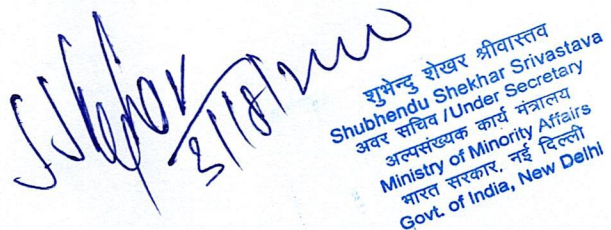 SShekhar
शुभेन्दु शेखर श्रीवास्तव
Shubhendu Shekhar Srivastava
अवर सचिव/Under Secretary
अल्पसंख्यक कार्य मंत्रालय
Ministry of Minority Affairs
भारत सरकार, नई दिल्ली
Govt. of India, New Delhi